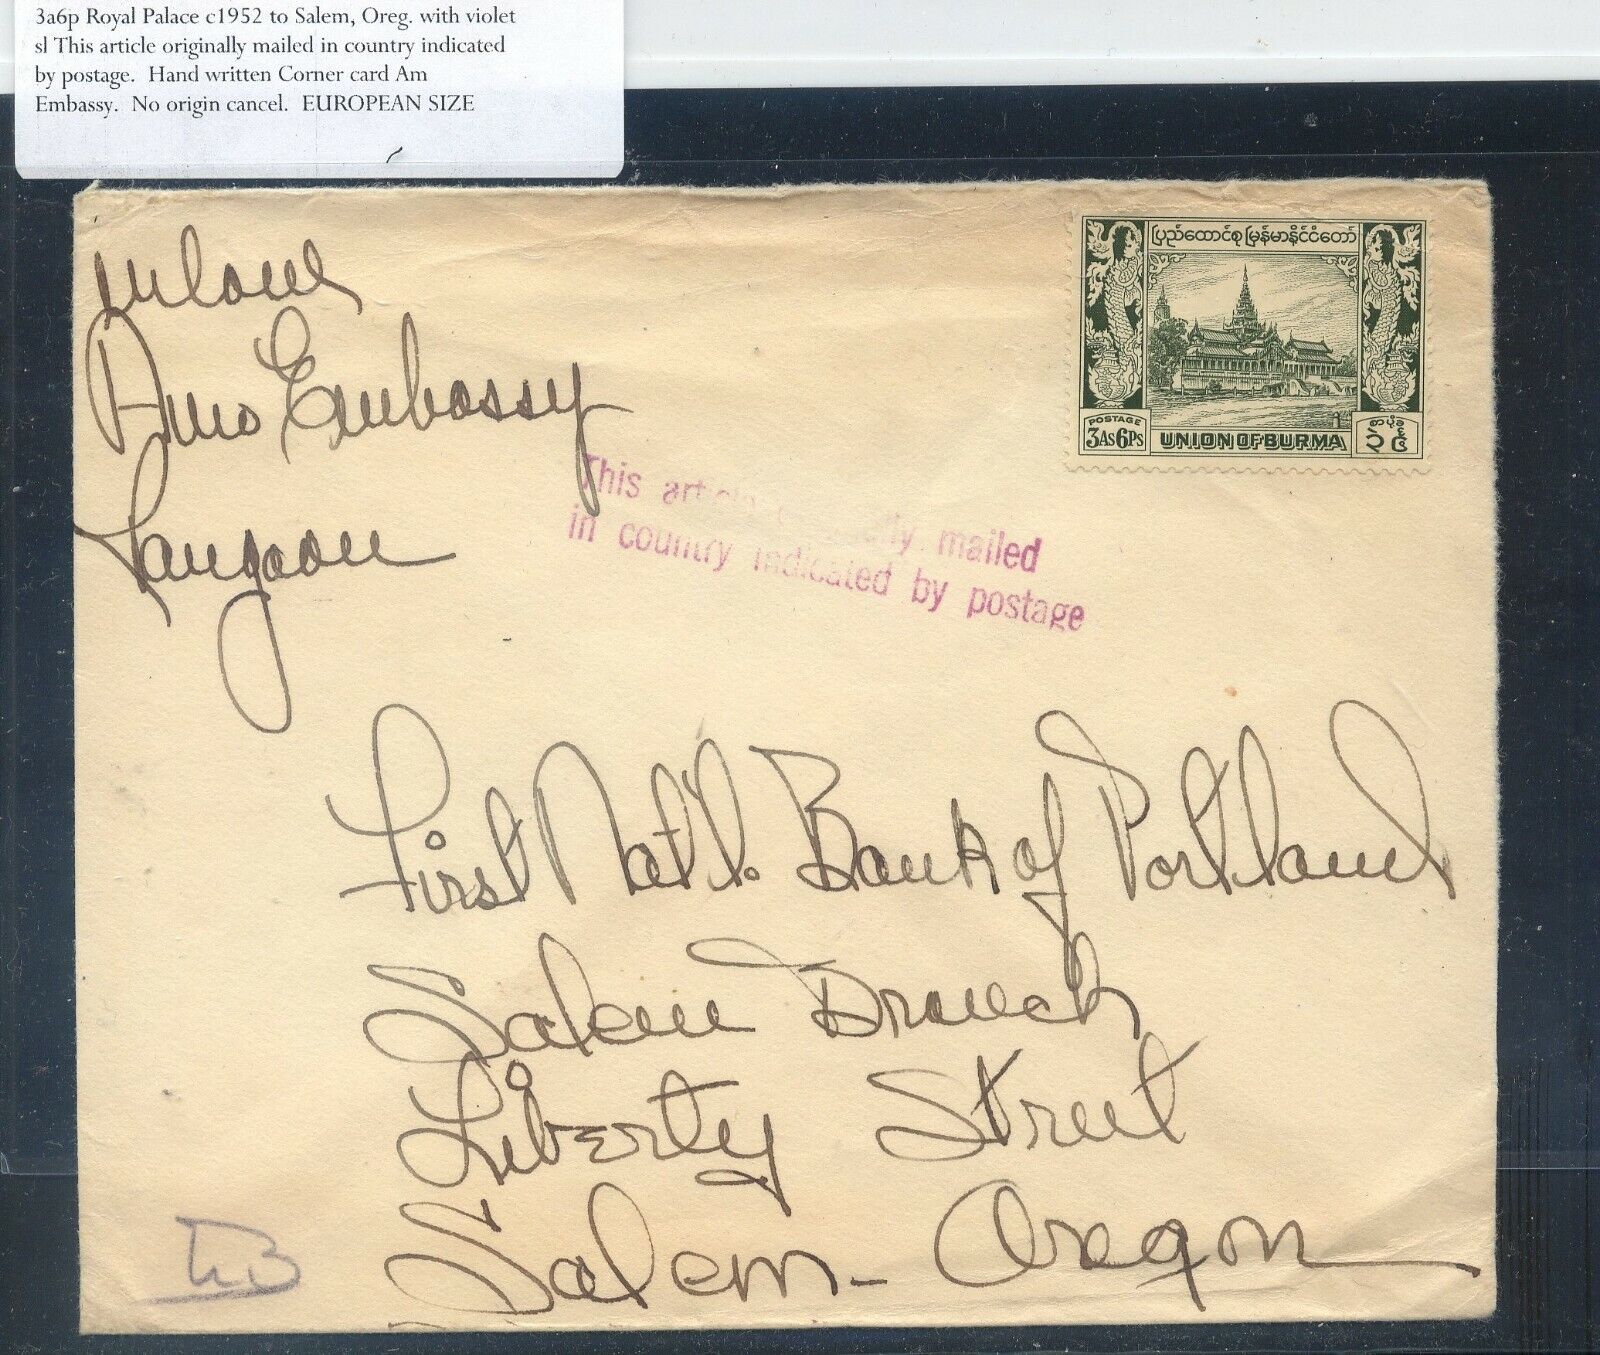 3a6p Royal Palace c1952 to Salem, Oreg. with violet
sl This article originally mailed in country indicated
by postage. Hand written Corner card Am
Embassy. No origin cancel. EUROPEAN SIZE
Embassy
Rangoon
ပြည်ထောင်စုမြန်မာနိုင်ငံတော်
POSTAGE
3AS6PS
UNION OF BURMA
This article mailed
in country indicated by postage
First Nat'l. Bank of Portland
Salem Branch
Liberty Street
Salem - Oregon